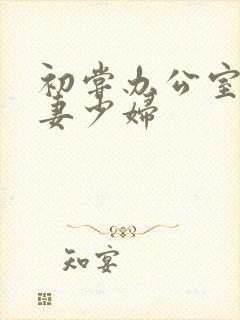 初尝办公室
妻少妇
知宴